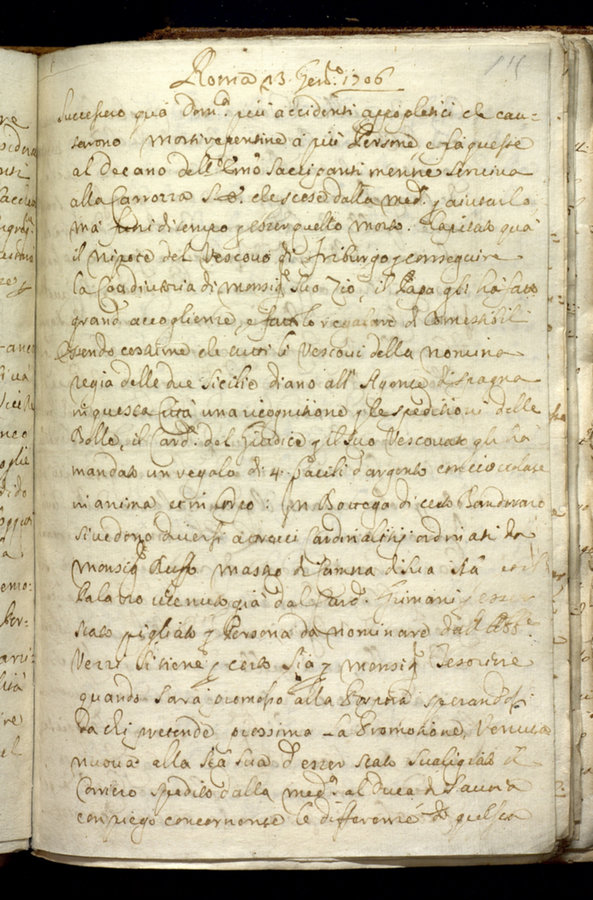 Roma 23. Gen.º 1706
Successero quà Dom.ª più accidenti appopletici che cau-
sarono morti repentine à più Persone, e fà queste
al Decano dell' Emº Sacripanti mentre serviva
alla Carrozza S.E. che scese dalla med.ª p aiutarlo
mà fuori di tempo p esser quello morto. Capitato quà
il nipote del Vescovo di Friburgo p conseguire
la Coadiutoria di Monsig.r suo Zio, il Papa gli hà fatto
grand' accoglienze, e fattolo regalare di Comestibili
Essendo costume che tutti li Vescovi della nomina
regia delle due Sicilie diano all' Agente di Spagna
in questa Città una ricognitione p le speditioni delle
Bolle, il Card.l del Giudice p il suo Vescovato gli hà
mandato un regalo di 4. bacili d'argento con cioccolate
in Bottega di certo Banderaro
si vedono diversi Cardinalitij ordinati da
Monsig.r Ruffo Mastro di Camera di Sua Stà
Palazzo ritenuto già dal Card.l Grimani p esser
stato pigliato p Persona da nominare dall' Abb.e
Verzi si tiene p certo sia p Monsig.r Tesoriere
quando sarà promosso alla Porpora sperandosi
da chi pretende prossima la Promotione, Venuta
nuova alla Stà Sua d'esser stato svaligiato il
Corriero spedito dalla med.ª al Duca di Savoia
con piego concernente le differenze di quella